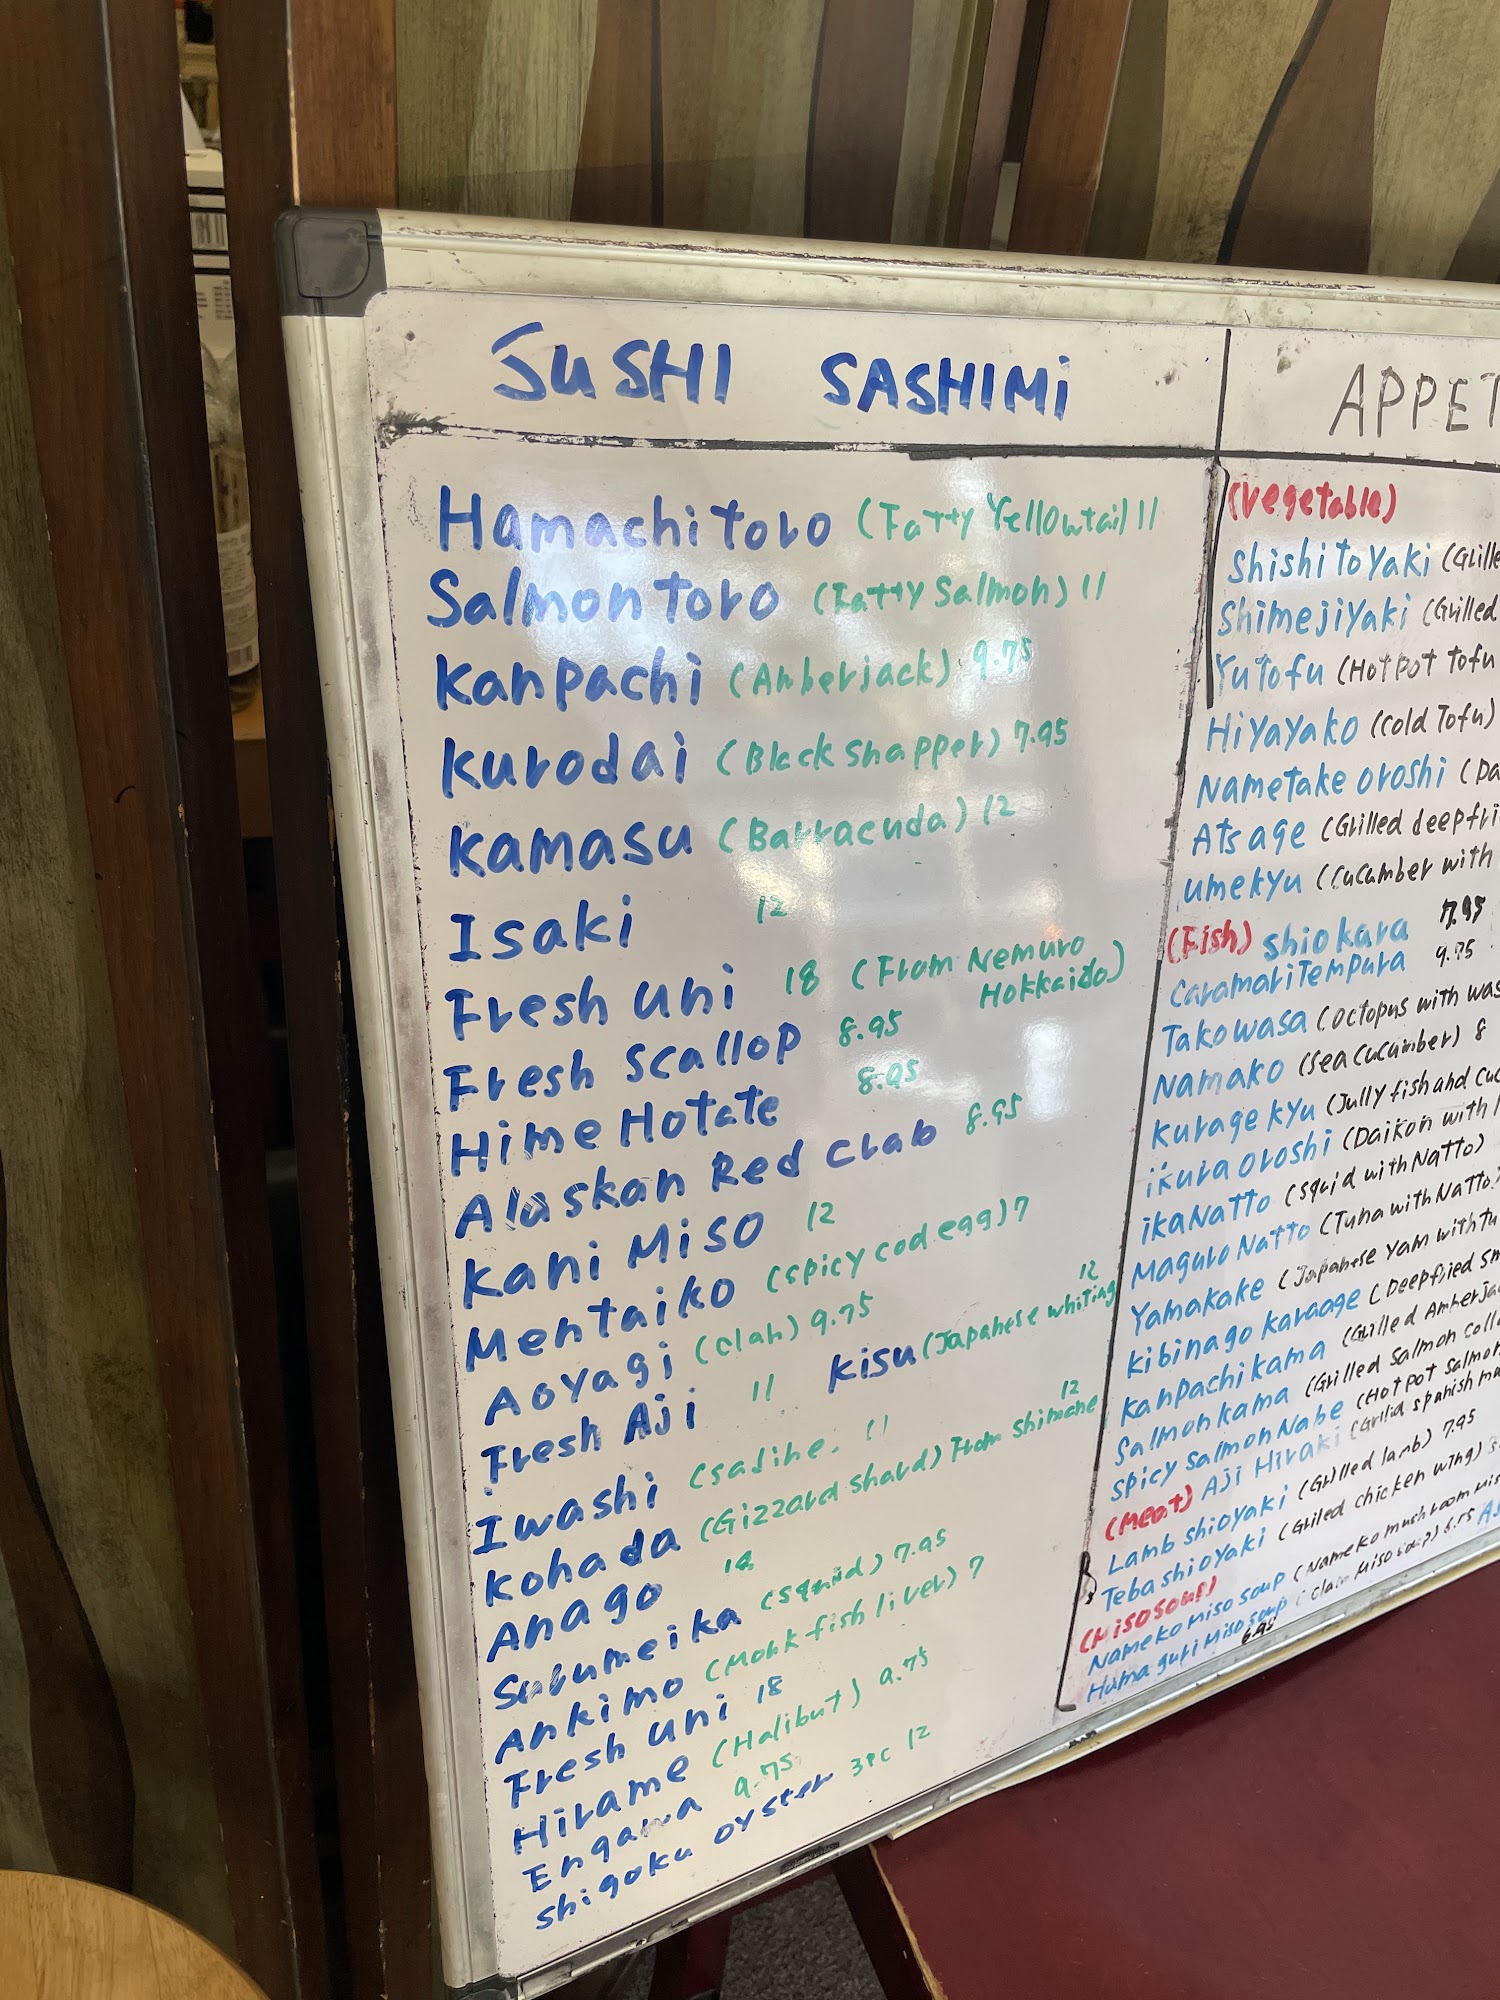 SUSHI SASHIMI
Hamachi toro (Fatty Yellowtail) 11
Salmon Toro (Fatty Salmon) 11
Kanpachi (Amberjack) 9.75
Kurodai (Black Snapper) 7.95
Kamasu (Barracuda) 12
Isaki 12
Fresh uni 18 (From Nemuro
Hokkaido)
Fresh Scallop 8.95
Hime Hotate 8.95
Alaskan Red Crab 8.95
Kani Miso 12
Mentaiko (spicy cod egg) 7
Aoyagi (clah) 9.75
Fresh Aji 11
Kisu (Japanese whiting 12
Iwashi (sadine. 11
Kohada (Gizzard shard) From shimane 12
Anago
Surumeika (squid) 7.95
Ankimo (Monk fish liver) 7
Fresh uni 18
Hirame (Halibut) 9.75
Engawa 9.75
Shigoku oyster 3PC 12
APPET
(Vegetable)
Shishito Yaki (Grille
Shimeji Yaki (Grilled
Yutofu (Hot pot Tofu
Hiyayako (Cold Tofu)
Nametake oroshi (Da
Atsage (Grilled deepfri
umekyu (Cucumber with
(Fish) shiokara 7.95
Caramari Tempura 9.75
Takowasa (octopus with was
Namako (Sea Cucumber) 8
Kurage kyu (Jully fish and cuc
ikura oroshi (Daikon with
ika Natto (squid with Natto)
Maguro Natto (Tuna with Natto)
Yamakake (Japanese Yam with tu
Kibinago karaage (Deepfried sm
Kanpachi kama (Grilled Amberjac
Salmon kama (Grilled Salmon Colla
Spicy Salmon Nabe (Hot pot Salmon
Aji Hiraki (Grilld spanish ma
(Meat)
Lamb shioyaki (Grilled lamb) 7.95
Teba shioyaki (Grilled chicken wing)
(Miso soup)
Nameko Miso soup (Nameko mushroom Mis
Hamaguri Miso soup (Clam Miso soup) 6.95